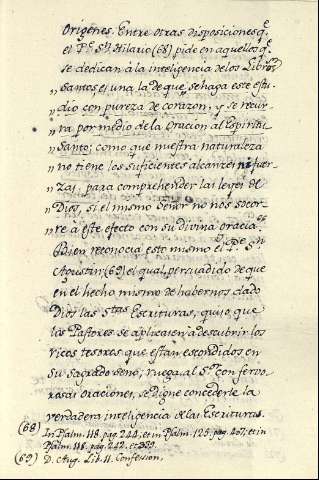 Origenes. Entre otras disposiciones q.e
el P.e S.n Hilario (68) pide en aquellos q.e
se dedican à la inteligencia de los Libros
„ Santos es una la de que se haga este estu-
„ dio con pureza de corazon, y se recur-
„ ra por medio de la Oracion al Espiritu
„ Santo; como que nuestra naturaleza
„ no tiene los suficientes alcanzes ni fuer-
„ zas, para comprehender las leyes de
„ Dios, si el mismo Señor no nos socor-
„ re à este efecto con su divina gracia.
Bien reconocia esto mismo el P.e S.n
Agustin (69) el qual, persuadido de que
en el hecho mismo de habernos dado
Dios las S.tas Escrituras, quiso que
los Pastores se aplicasen à descubrir los
ricos tesoros que estan escondidos en
su Sagrado Seno, ruega al S.or con fervo-
rosas oraciones, se digne concederle la
verdadera inteligencia de las Escrituras.
(68) In Psalm. 118. pag. 244; et in Psalm. 125. pag. 407; et in
Psalm. 118. pag. 242. et
(69) D. Aug. Lib. 11. Confession.